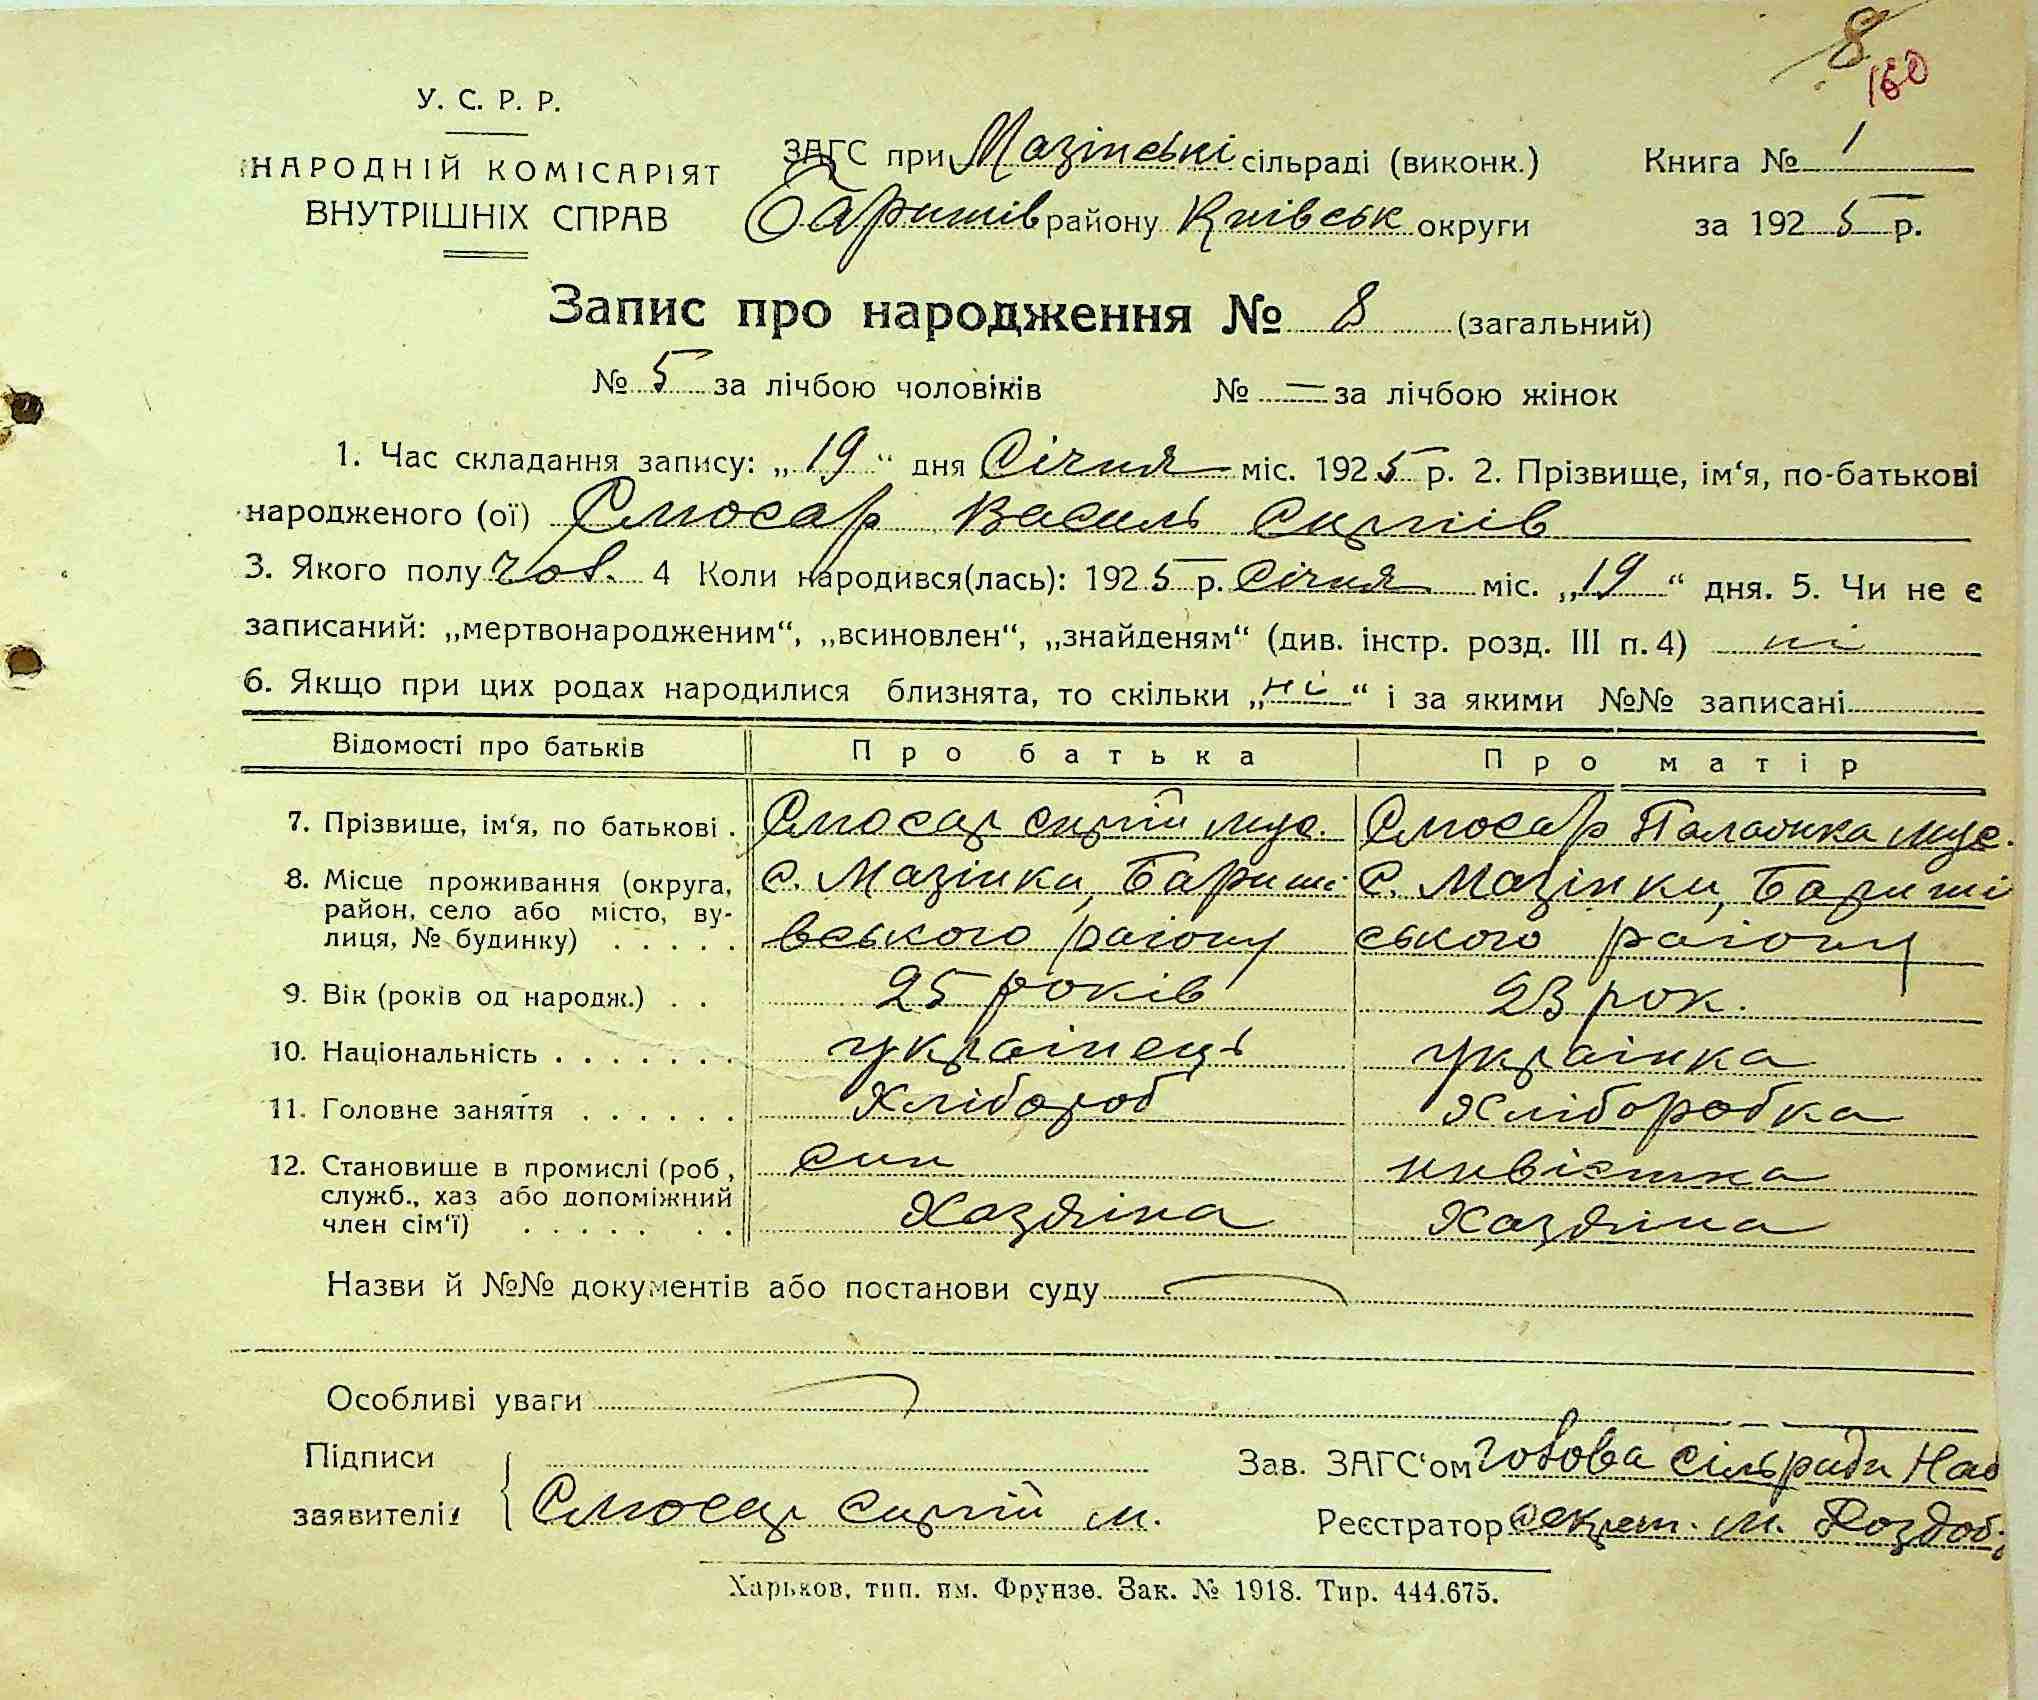 8
160
У. С. Р. Р.
НАРОДНІЙ КОМІСАРІЯТ
ВНУТРІШНІХ СПРАВ
ЗАГС при Мазінські сільраді (виконк.)
Баришів району Київськ округи
Книга № 1
за 1925 р.
Запис про народження № 8 (загальний)
№ 5 за лічбою чоловіків № = за лічбою жінок
1. Час складання запису: „19“ дня Січня міс. 1925 р. 2. Прізвище, ім‘я, по-батькові
народженого (ої) Слюсар Василь Сиргіїв
3. Якого полу чов. 4 Коли народився(лась): 1925 р. Січня міс. „19“ дня. 5. Чи не є
записаний: „мертвонародженим“, „всиновлен“, „знайденям“ (див. інстр. розд. III п. 4) ні
6. Якщо при цих родах народилися близнята, то скільки „ні“ і за якими №№ записані
Відомості про батьків Про батька Про матір
7. Прізвище, ім‘я, по батькові . Слюсар Сиргій Мус. Слюсар Палажка Мус.
8. Місце проживання (округа, район, село або місто, вулиця, № будинку) с. Мазінки, Бариші с. Мазінки, Бариші
вського району ського району
9. Вік (років од народж.) . . 25 років 23 рок.
10. Національність . . . . . . . українець українка
11. Головне заняття . . . . . . Хлібороб Хліборобка
12. Становище в промислі (роб, служб., хаз або допоміжний член сім‘ї) син нивістка
Хазяіна Хазяіна
Назви й №№ документів або постанови суду
Особливі уваги
Підписи
заявителів
Слюсар Сиргій М.
Зав. ЗАГС‘ом Голова сільради
Реєстратор Секрет. М. Роздоб
Харьков, тип. им. Фрунзе. Зак. № 1918. Тир. 444.675.